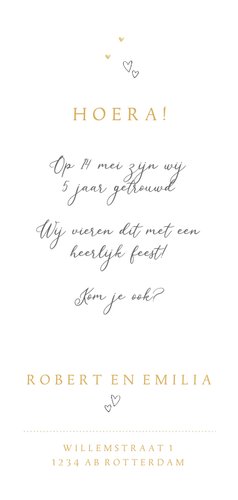 HOERA!
Op 14 mei zijn wij
5 jaar getrouwd
Wij vieren dit met een
heerlijk feest!
Kom je ook?
ROBERT EN EMILIA
WILLEMSTRAAT 1
1234 AB ROTTERDAM